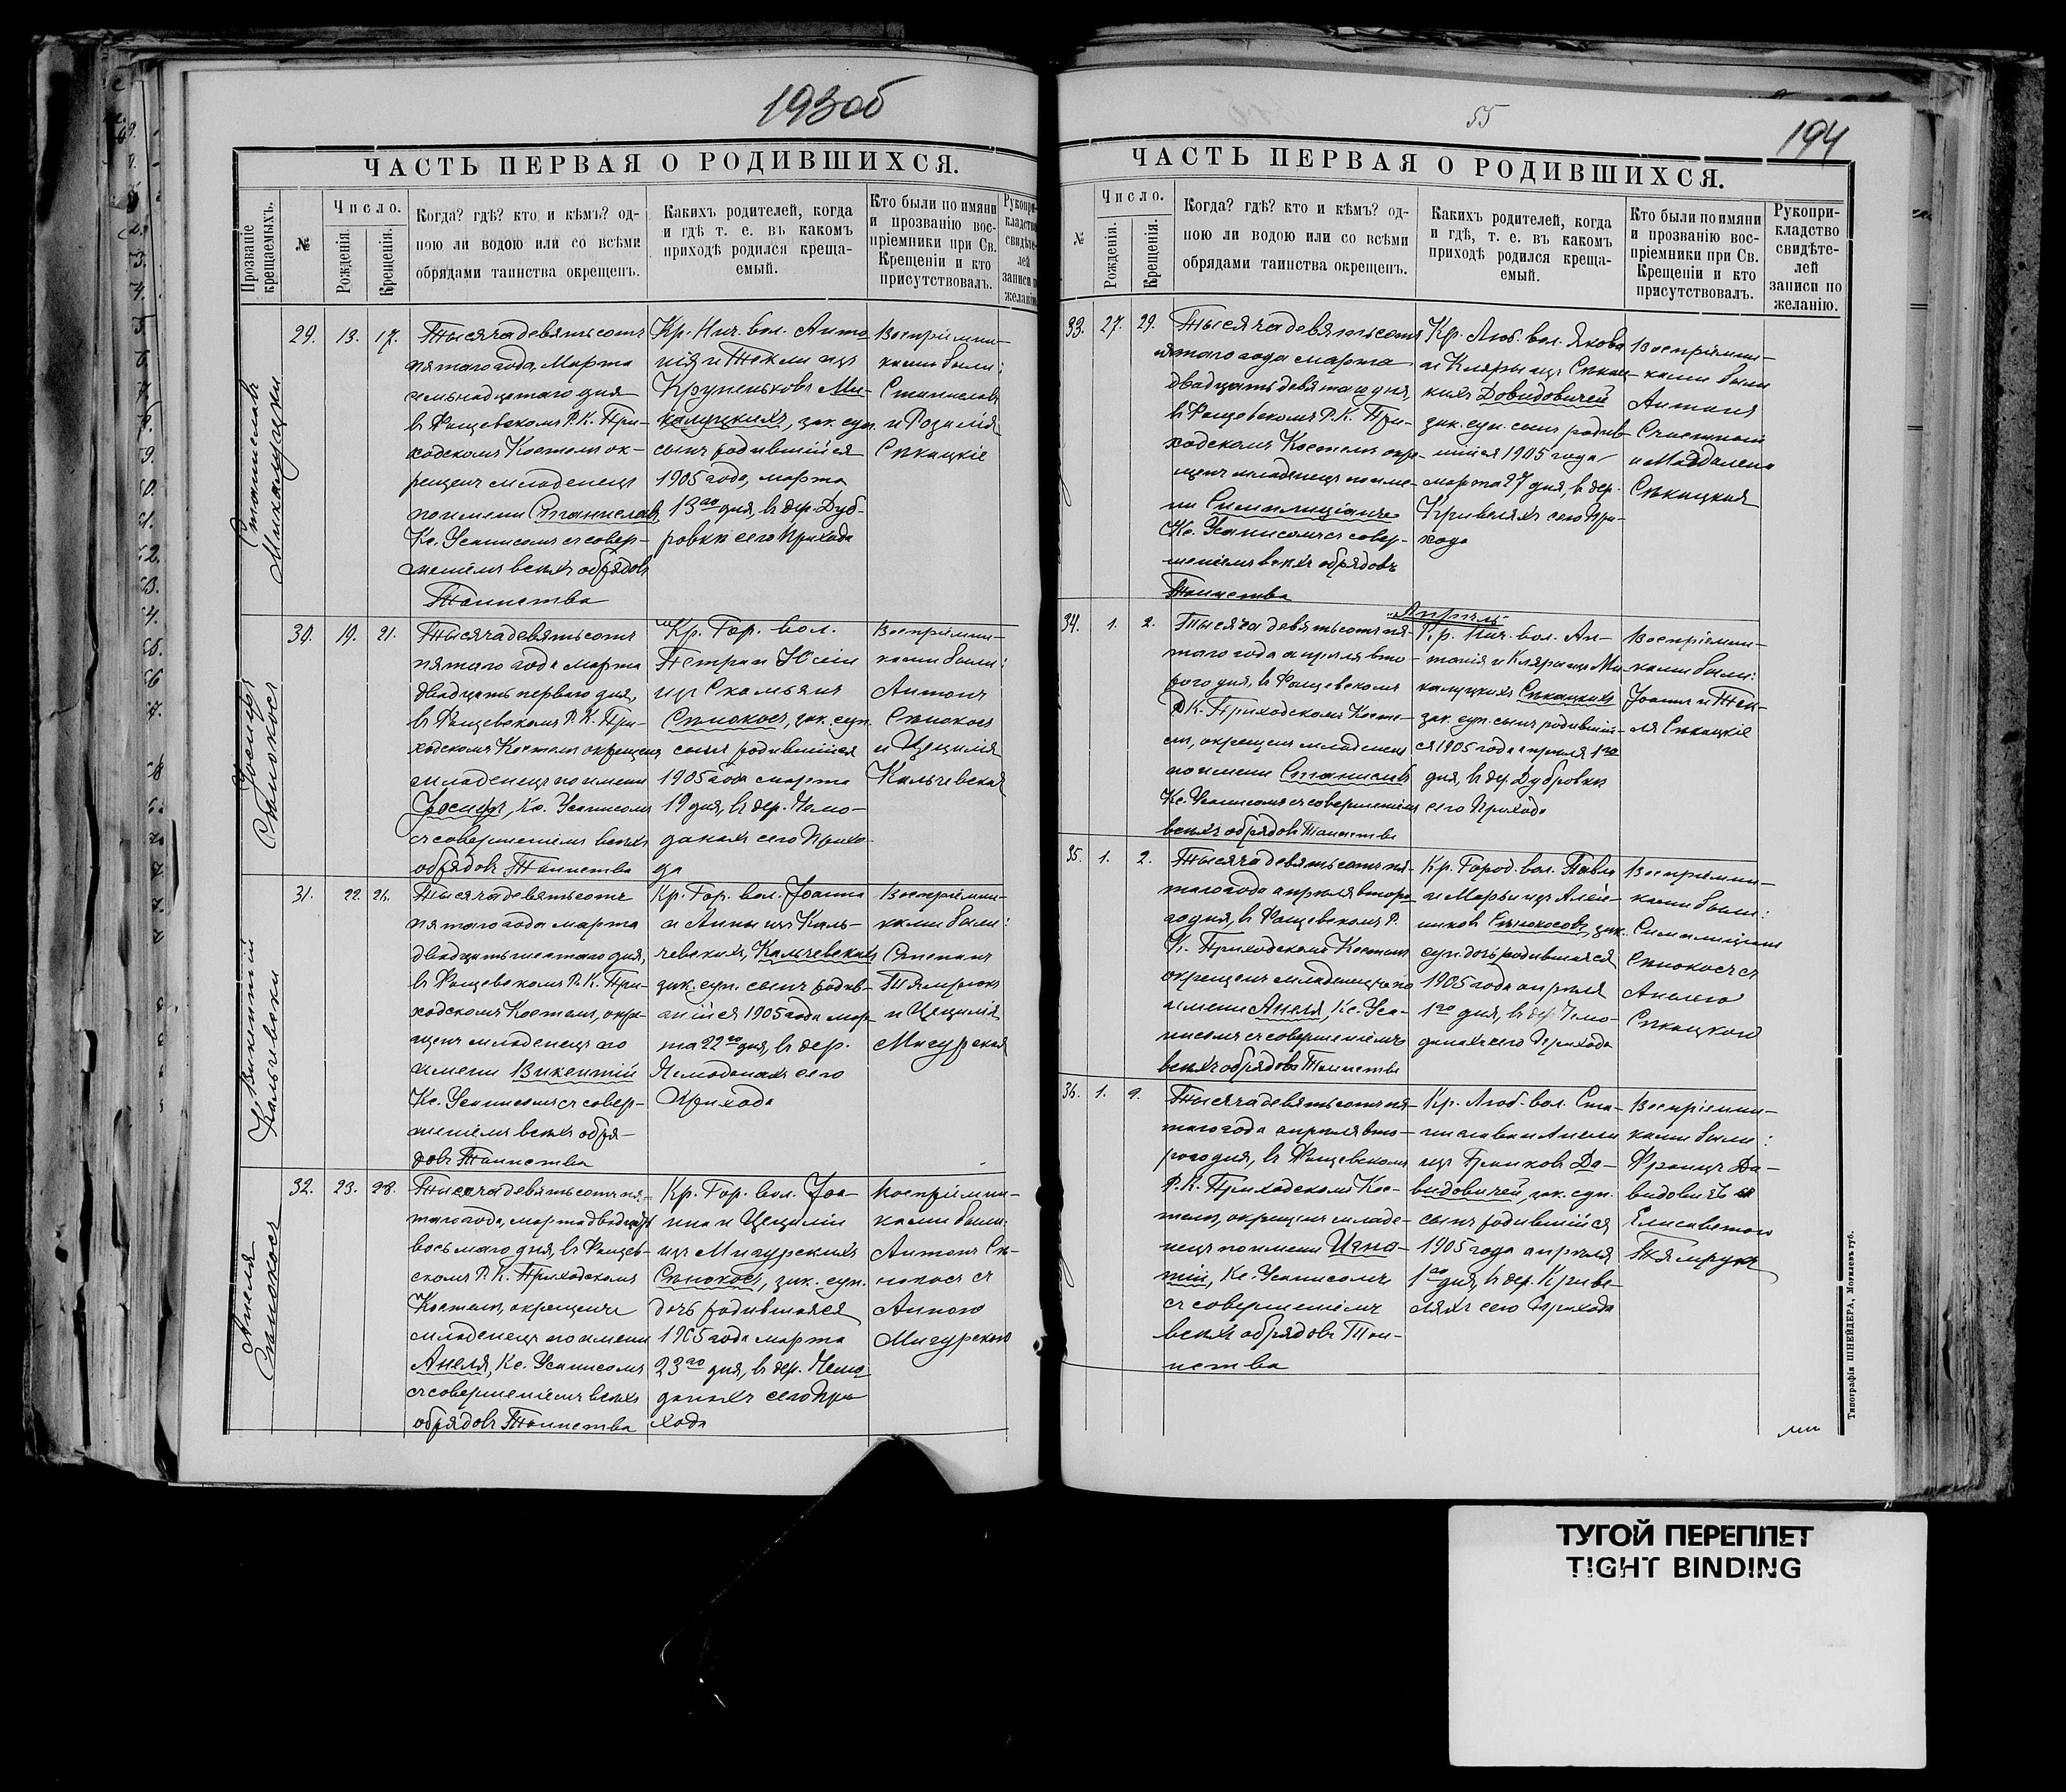 193об
ЧАСТЬ ПЕРВАЯ О РОДИВШИХСЯ.
Прозваніе крещаемыхъ.
№
Число.
Рожденія.
Крещенія.
Когда? гдѣ? кто и кѣмъ? од-
ною ли водою или со всѣми
обрядами таинства окрещенъ.
Какихъ родителей, когда
и гдѣ т. е. въ какомъ
приходѣ родился креща-
емый.
Кто были по имяни
и прозванію вос-
пріемники при Св.
Крещеніи и кто
присутствовалъ.
Рукопри-
кладство
свидѣте-
лей
записи по
желанію.
Станиславъ
Микалуцки
29. 13. 17.
Тысяча девятьсотъ
пятаго года, Марта
семьнадцатаго дня
въ Фащевскомъ Р. К. При-
ходскомъ Костелѣ ок-
рещенъ младенецъ
по имени Станиславъ
Кс. Усаписомъ съ совер-
шеніемъ всѣхъ обрядовъ
Таинства
Кр. Нич. вол. Анто
нія и Текли изъ
Крупеньковъ Ми-
калуцкихъ, зак. суп.
сынъ родившійся
1905 года, марта
13го дня, въ дер. Дуб-
ровкѣ сего Прихода
Воспріемни-
ками были:
Станиславъ
и Розалія
Сѣкацкіе
Іосифъ
Сѣнокосъ
30. 19. 21.
Тысяча девятьсотъ
пятаго года марта
двадцать перваго дня,
въ Фащевскомъ Р. К. При-
ходскомъ Костелѣ окрещенъ
младенецъ по имени
Іосифъ, Кс. Усаписомъ
съ совершеніемъ всѣхъ
обрядовъ Таинства
Кр. Гор. вол.
Петра и Юліи
изъ Скамьянъ
Сѣнокосъ, зак. суп.
сынъ родившійся
1905 года марта
19 дня, въ дер. Чемо-
данахъ сего Прихо-
да
Воспріемни-
ками были:
Антонъ
Сѣнокосъ
и Цецилія
Кальчевская
Викентій
Кальчевски
31. 22. 26.
Тысяча девятьсотъ
пятаго года марта
двадцать шестаго дня,
въ Фащевскомъ Р. К. При-
ходскомъ Костелѣ, окре-
щенъ младенецъ по
имени Викентій
Кс. Усаписомъ съ совер-
шеніемъ всѣхъ обря-
довъ Таинства
Кр. Гор. вол. Іоанна
и Анны изъ Каль-
чевскихъ, Кальчевскихъ
зак. суп. сынъ родив-
шійся 1905 года мар-
та 22го дня, въ дер.
Чемоданахъ сего
Прихода
Воспріемни-
ками были:
Степанъ
Тямрукъ
и Цецилія
Мигурская
Анеля
Сѣнокосъ
32. 23. 28.
Тысяча девятьсотъ пя-
таго года, марта двадцать
восьмаго дня, въ Фащев-
скомъ Р. К. Приходскомъ
Костелѣ, окрещенъ
младенецъ по имени
Анеля, Кс. Усаписомъ
съ совершеніемъ всѣхъ
обрядовъ Таинства
Кр. Гор. вол. Іоа-
нна и Цециліи
изъ Мигурскихъ
Сѣнокосъ, зак. суп.
дочь родившаяся
1905 года марта
23го дня, въ дер. Чемо
данахъ сего При
хода
Воспріемни-
ками были:
Антонъ Сѣ-
нокосъ съ
Анною
Мигурскою
55
194
ЧАСТЬ ПЕРВАЯ О РОДИВШИХСЯ.
№
Число.
Рожденія.
Крещенія.
Когда? гдѣ? кто и кѣмъ? од-
ною ли водою или со всѣми
обрядами таинства окрещенъ.
Какихъ родителей, когда
и гдѣ, т. е. въ какомъ
приходѣ родился креща-
емый.
Кто были по имяни
и прозванію вос-
пріемники при Св.
Крещеніи и кто
присутствовалъ.
Рукопри-
кладство
свидѣте-
лей
записи по
желанію.
33. 27. 29.
Тысяча девятьсотъ
пятаго года марта
двадцать девятаго дня,
въ Фащевскомъ Р. К. При-
ходскомъ Костелѣ окре-
щенъ младенецъ по име-
ни Симплиціанъ
Кс. Усаписомъ съ совер-
шеніемъ всѣхъ обрядовъ
Таинства
Кр. Люб. вол. Якова
и Клары изъ Сѣкац-
кихъ Довидовичей
зак. суп. сынъ родив-
шійся 1905 года
марта 27 дня, въ дер.
Кривеляхъ сего При-
хода
Воспріемни-
ками были
Антоній
Счастный
и Магдалена
Сѣкацкая
Апрѣль
34. 1. 2.
Тысяча девятьсотъ пя-
таго года апрѣля вто-
рого дня, въ Фащевскомъ
Р. К. Приходскомъ Косте-
лѣ, окрещенъ младенецъ
по имени Станиславъ
Кс. Усаписомъ съ совершеніемъ
всѣхъ обрядовъ Таинства
Кр. Нич. вол. Ан-
тонія и Клары изъ Ми-
калуцкихъ Сѣкацкихъ
зак. суп. сынъ родивший-
ся 1905 года апрѣля 1го
дня, въ дер. Дубровкѣ
сего Прихода
Воспріемни-
ками были:
Іоаннъ и Тек-
ля Сѣкацкіе
35. 1. 2.
Тысяча девятьсотъ пя-
таго года апрѣля второ-
го дня, въ Фащевскомъ Р.
К. Приходскомъ Костелѣ
окрещенъ младенецъ по
имени Анеля, Кс. Уса-
писомъ съ совершеніемъ
всѣхъ обрядовъ Таинства
Кр. Город. вол. Павла
и Марьи изъ Алей-
никовъ Сѣнокосовъ, зак.
суп. дочь родившаяся
1905 года апрѣля
1го дня, въ дер. Чемо-
данахъ сего Прихода
Воспріемни-
ками были:
Симплиціанъ
Сѣнокосъ съ
Анелею
Сѣкацкою
36. 1. 2.
Тысяча девятьсотъ пя-
таго года апрѣля вто-
рого дня, въ Фащевскомъ
Р. К. Приходскомъ Кос-
телѣ, окрещенъ младе-
нецъ по имени Игна-
тій, Кс. Усаписомъ
съ совершеніемъ
всѣхъ обрядовъ Таи-
нства
Кр. Люб. вол. Ста-
нислава и Анели
изъ Гранковъ Да-
видовичей, зак. суп.
сынъ родившійся
1905 года апрѣля
1го дня, въ дер. Криве-
ляхъ сего Прихода
Воспріемни-
ками были:
Францъ Да-
видовичъ съ
Елисаветою
Тямрукъ
Типографія ШНЕЙДЕРА, Могилевъ губ.
ТУГОЙ ПЕРЕПЛЕТ
TIGHT BINDING